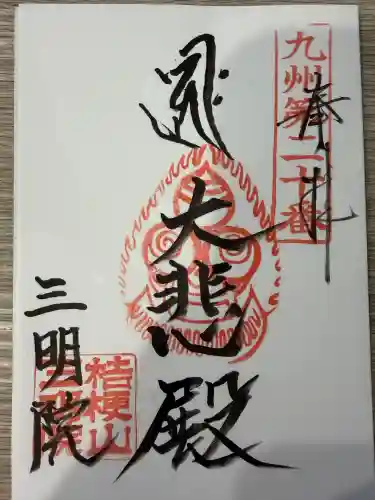 九州第二十番
奉拝
大悲殿
三明院
桔梗山
三明院